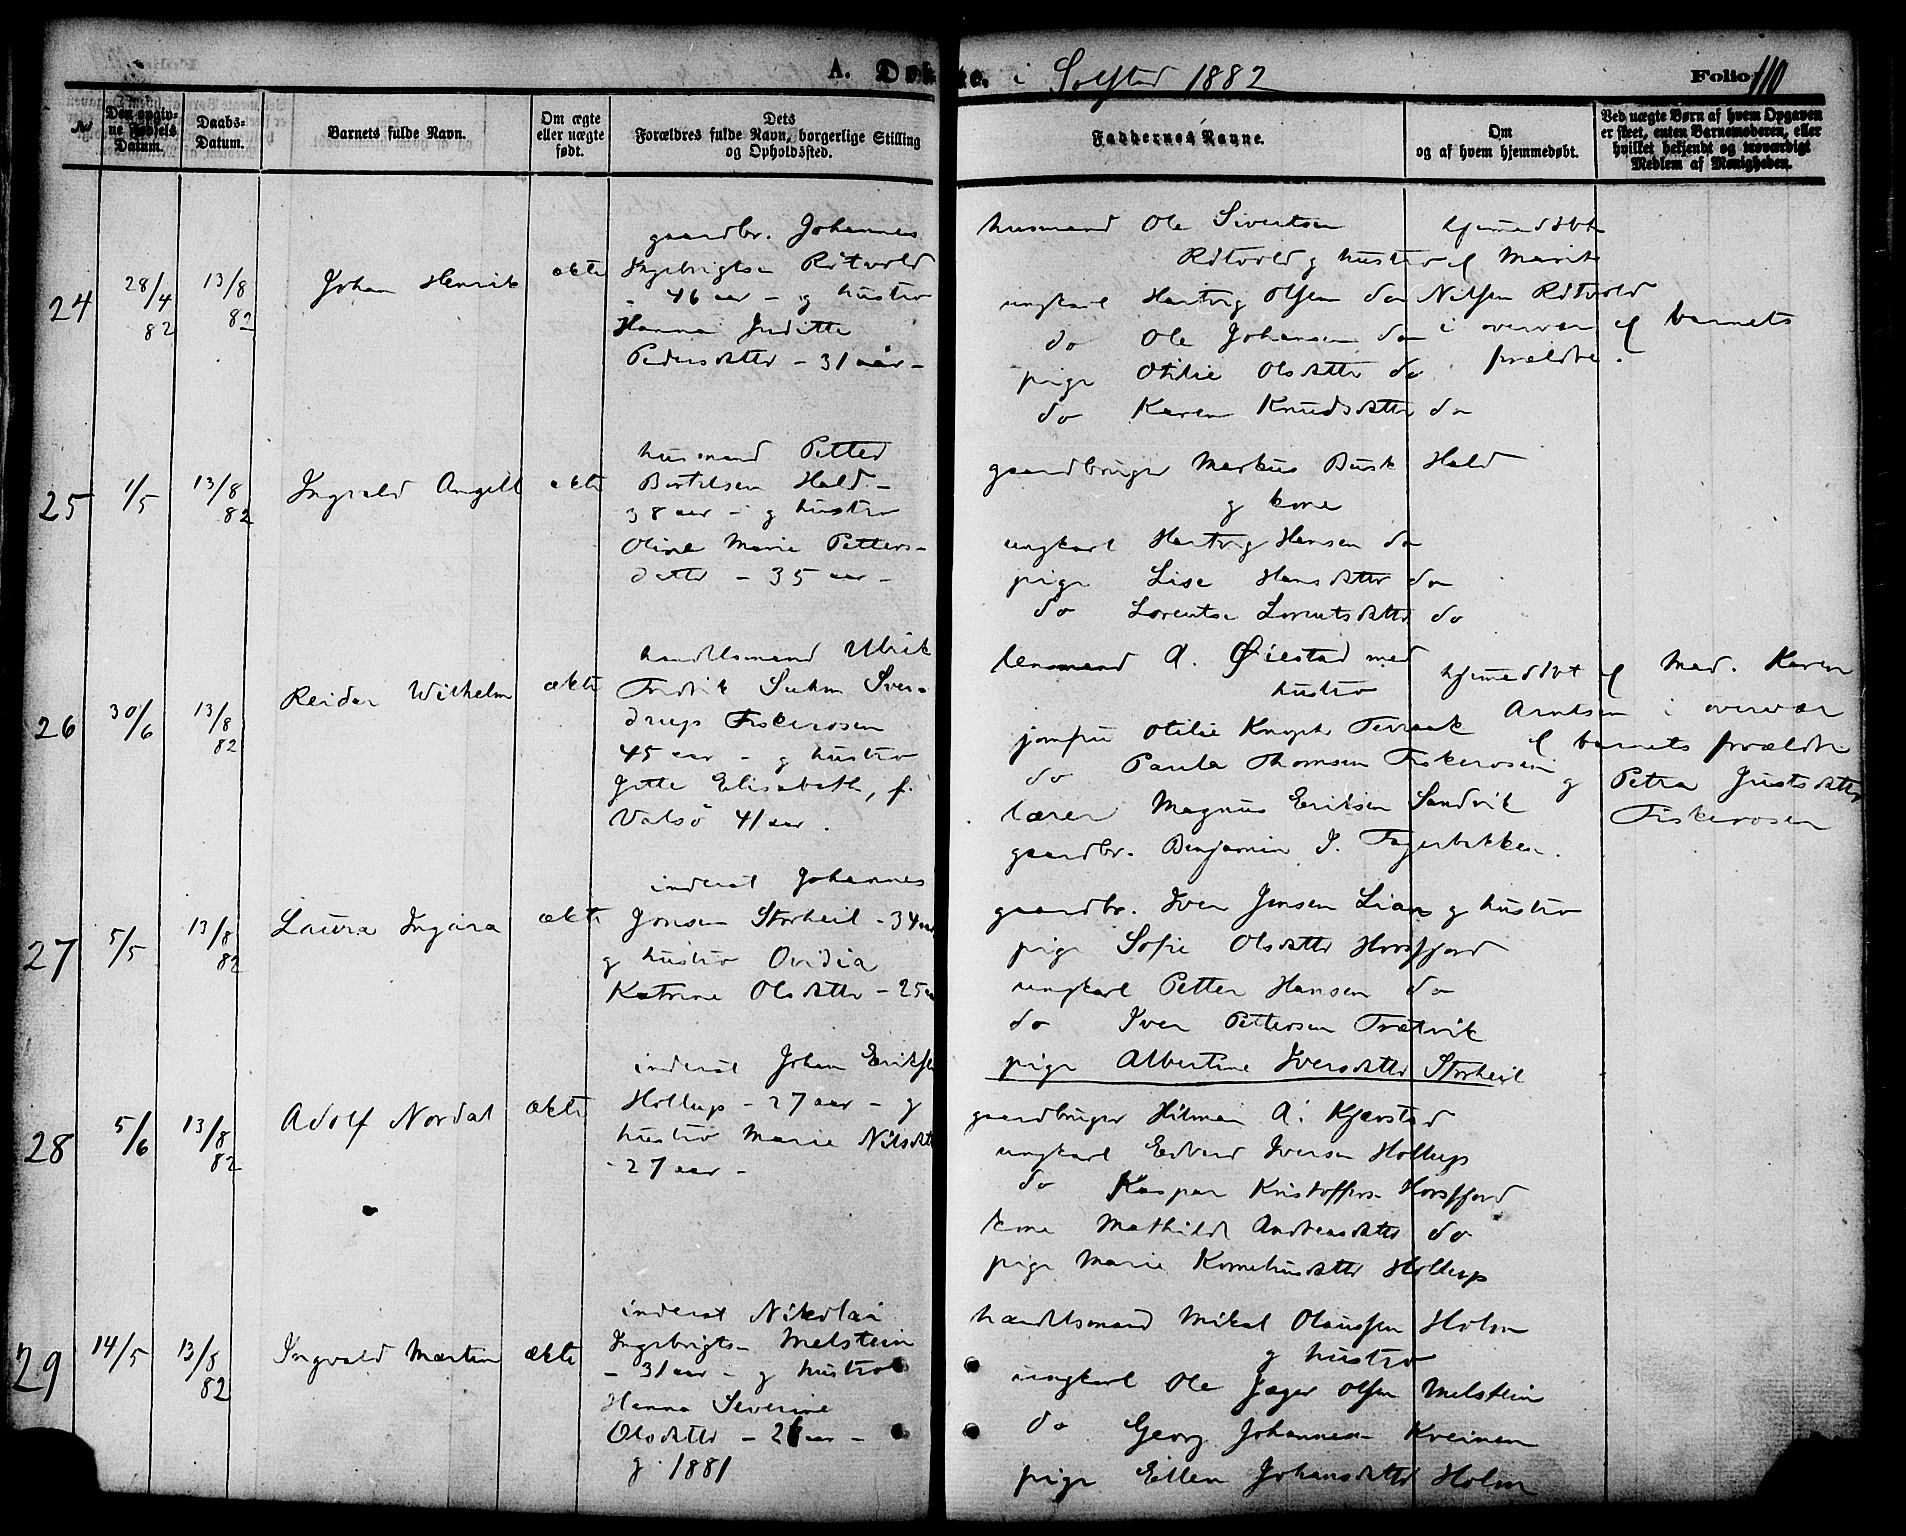 A. Døbte. i Solstad 1882 Folio 110
№
Den opgivne Fødsels Datum.
Daabs-Datum.
Barnets fulde Navn.
Om ægte eller uægte født.
Dets Forældres fulde Navn, borgerlige Stilling og Opholdssted.
Faddernes Navne.
Om og af hvem hjemmedøbt.
Ved uægte Børn af hvem Opgaven er skeet, enten Barnemoderen, eller hvilket bekjendt og troværdigt Medlem af Menigheden.
24
28/4 82
13/8 82
Johan Henrik
ækte
gaardbr. Johannes
Ingebrigtsen Rötvold
- 46 aar - og hustro
Hanna Juditte
Pedersdatter - 31 aar -
husmand Ole Sivertsen
Rötvold og hustro
ungkarl Hartvig Olsen do
do Ole Johansen do
pige Otilie Olsdatter do
do Karen Knudsdatter do
hjemmedöbt
af Marit
Nilsen Rötvold
i overvær af barnets
forældre.
25
1/5
13/8 82
Ingvald Angell
ækte
husmand Petter
Bertelsen Hald -
38 aar - og hustro
Oline Marie Petters-
datter - 35 aar -
gaardbruger Markus Busk Hald
og kone
ungkarl Hartvig Hansen do
pige Lise Hansdatter do
do Lorentse Lorentsdatter do
26
30/6
13/8 82
Reidar Wilhelm
ækte
handelsmand Ulrik
Fredrik Suhm Sver-
drup Fiskerosen
45 aar - og hustro
Jette Elisabeth, f.
Valsö 41 aar.
lensmand A. Øiestad med
hustro
jomfru Otilie Knoph Terraak
do Paula Thomsen Fiskerosen
lærer Magnus Eriksen Sandvik
gaardbr. Benjamin J. Fagerbakken.
hjemmedöbt af Mad. Karen
Arntsen i overvær
af barnets forældre
og Petra Justsdatter
Fiskerosen
27
5/5
13/8 82
Laura Ingvara
ækte
inderst Johannes
Jonsen Storheil - 34 aar
og hustro Ovidia
Katrine Olsdatter - 25 aar
gaardbr. Iver Jensen Lian og hustro
pige Sofie Olsdatter Horsfjord
ungkarl Petter Hansen do
do Iver Pettersen Trætvik
pige Albertine Iversdatter Storheil
28
5/6
13/8 82
Adolf Nordal
ækte
inderst Johan Eriksen
Hollup - 27 aar - og
hustro Marie Nilsdatter
- 27 aar -
gaardbruger Hilmar A. Kjærstad
ungkarl Edvard Iversen Hollup
do Kaspar Kristoffers. Horsfjord
kone Mathilde Andreasdatter do
pige Marie Korneliusdatter Hollup
29
14/5
13/8 82
Ingvald Martin
ækte
inderst Nikolai
Ingebrigts. Melstein
- 31 aar - og hustro
Hanna Severine
Olsdatter - 26 aar -
g. 1881
handelsmand Mikal Olaussen Holm
og hustro
ungkarl Ole Jæger Olsen Melstein
do Georg Johannesen Kveinen
pige Ellen Johansdatter Holm